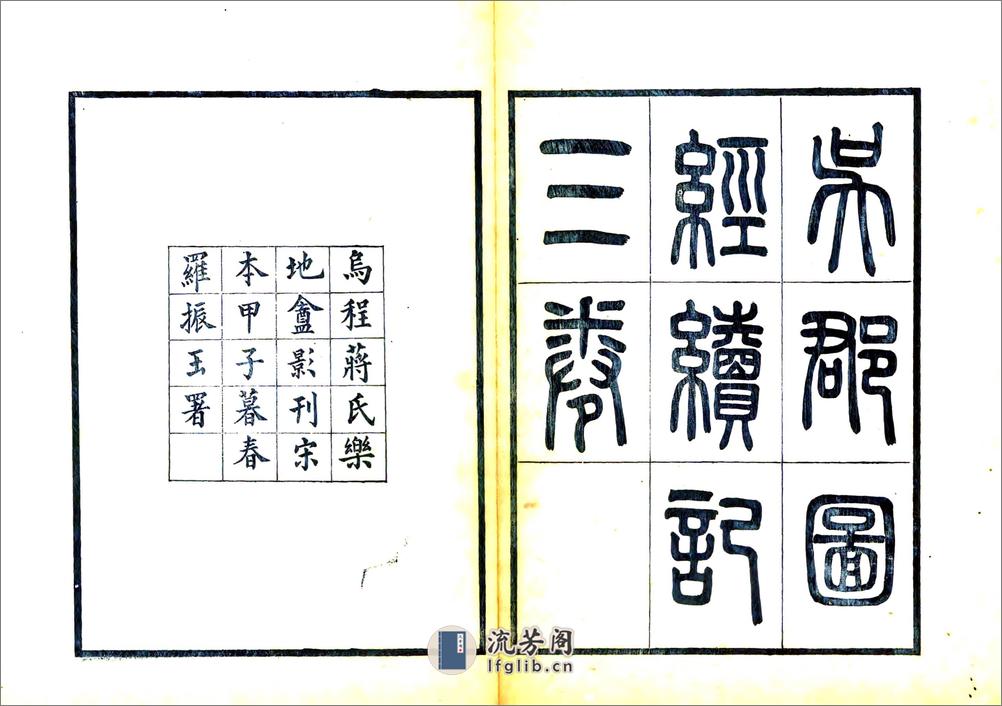 吳郡圖
經續記
三卷
烏程蔣氏樂
地盦影刊宋
本甲子暮春
羅振玉署
流芳阁
lfglib.cn